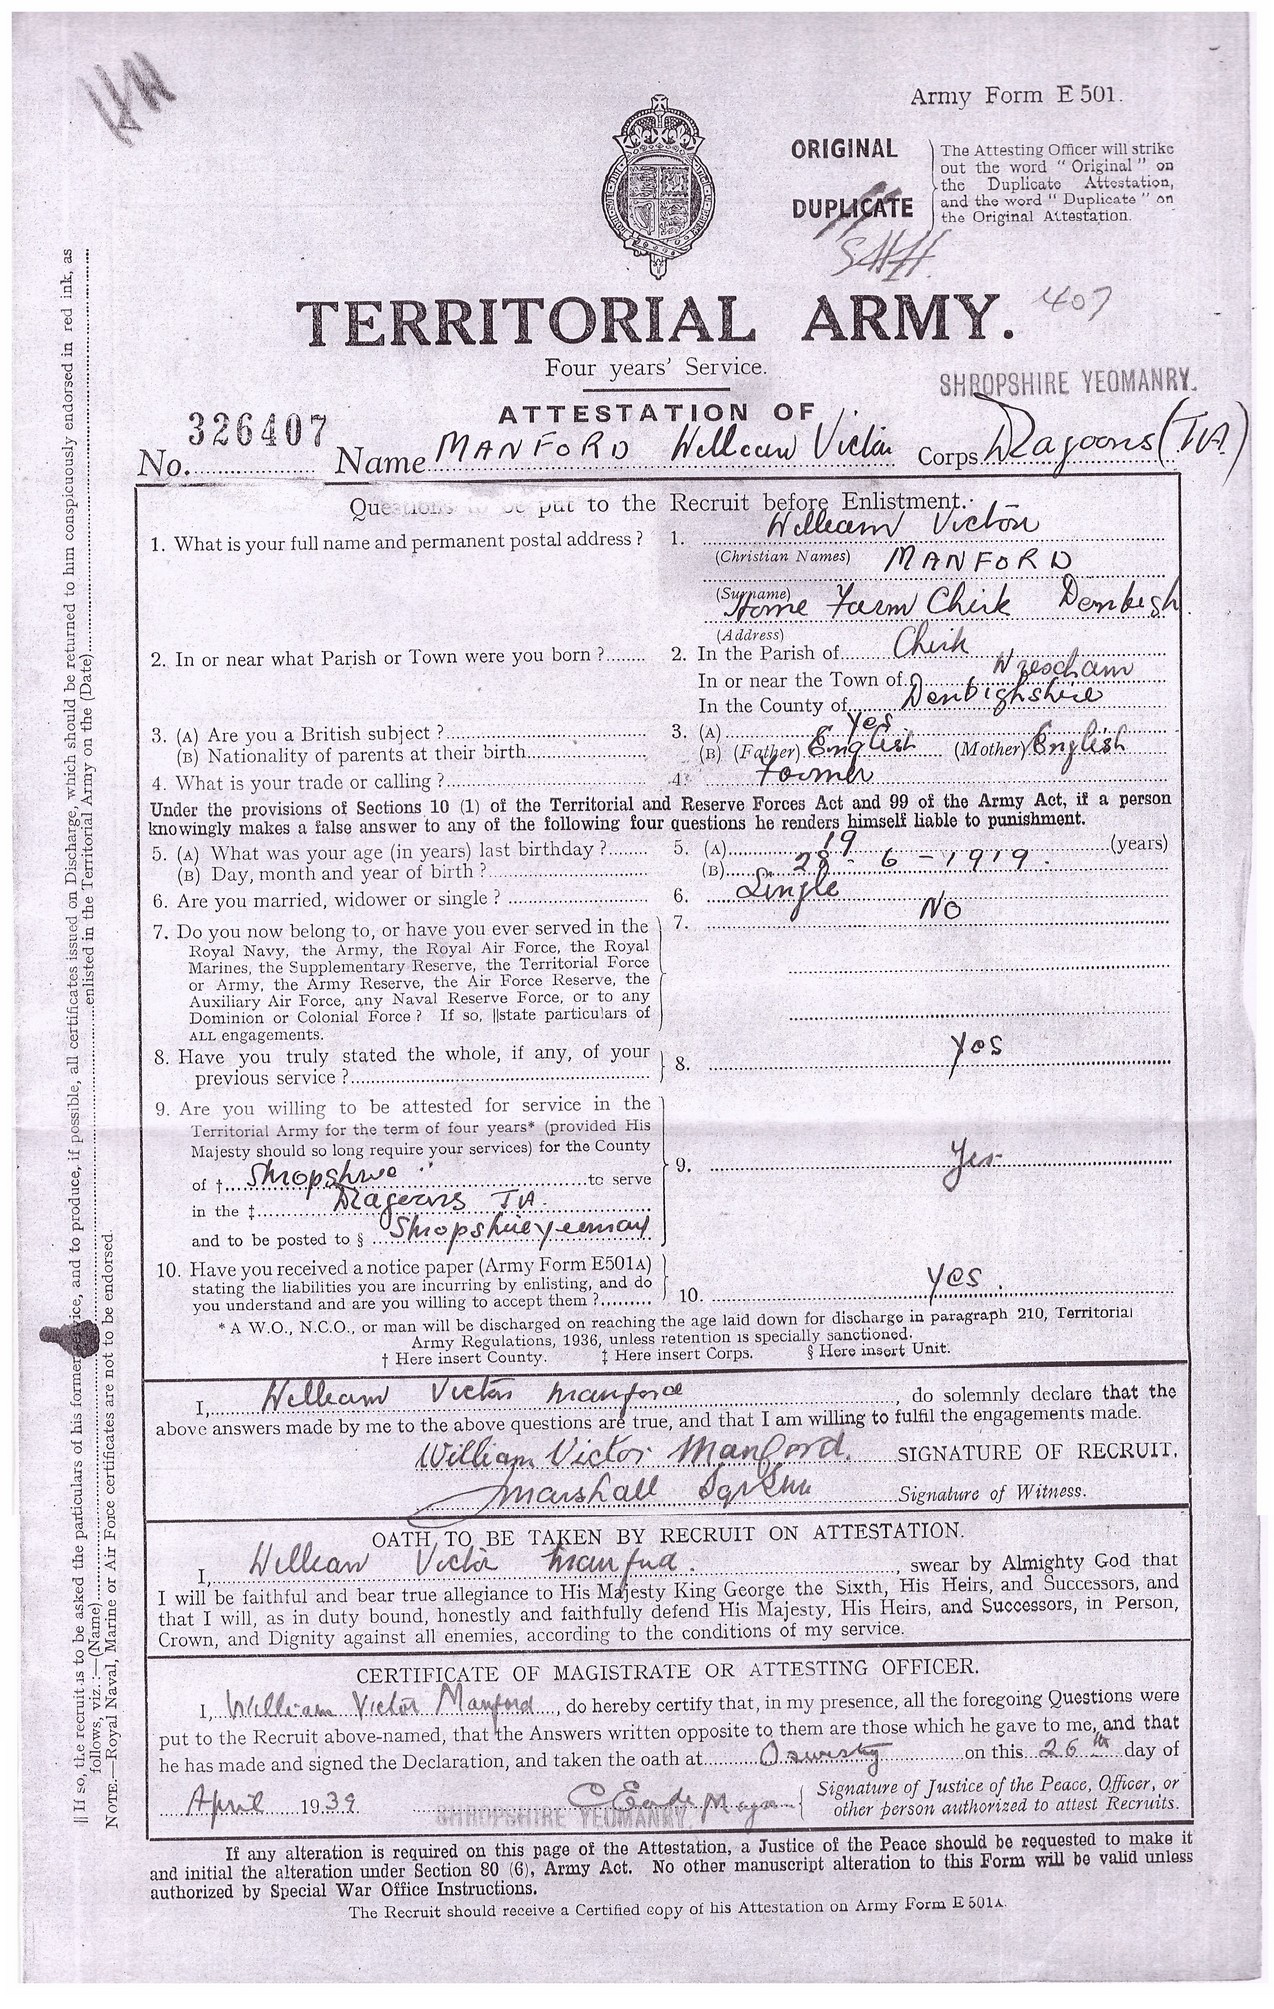 HH
Army Form E 501.
ORIGINAL
DUPLICATE
The Attesting Officer will strike
out the word " Original " on
the Duplicate Attestation,
and the word " Duplicate " on
the Original Attestation.
407
TERRITORIAL ARMY.
Four years' Service.
SHROPSHIRE YEOMANRY.
ATTESTATION OF
No. 326407 Name MANFORD William Victor Corps Dragoons (TA)
Questions to be put to the Recruit before Enlistment.
1. What is your full name and permanent postal address ? 1. William Victor
(Christian Names) MANFORD
(Surname) Home Farm Chirk Denbigh
(Address)
2. In or near what Parish or Town were you born ? 2. In the Parish of Chirk
In or near the Town of Wrexham
In the County of Denbighshire
3. (A) Are you a British subject ? 3. (A) Yes
(B) Nationality of parents at their birth (B) (Father) English (Mother) English
4. What is your trade or calling ? 4. Farmer
Under the provisions of Sections 10 (1) of the Territorial and Reserve Forces Act and 99 of the Army Act, if a person
knowingly makes a false answer to any of the following four questions he renders himself liable to punishment.
5. (A) What was your age (in years) last birthday ? 5. (A) 19 (years)
(B) Day, month and year of birth ? (B) 28 - 6 - 1919.
6. Are you married, widower or single ? 6. Single
7. Do you now belong to, or have you ever served in the 7. NO
Royal Navy, the Army, the Royal Air Force, the Royal
Marines, the Supplementary Reserve, the Territorial Force
or Army, the Army Reserve, the Air Force Reserve, the
Auxiliary Air Force, any Naval Reserve Force, or to any
Dominion or Colonial Force ? If so, ||state particulars of
ALL engagements.
8. Have you truly stated the whole, if any, of your
previous service ? 8. Yes
9. Are you willing to be attested for service in the
Territorial Army for the term of four years* (provided His
Majesty should so long require your services) for the County
of † Shropshire to serve 9. Yes
in the ‡ Dragoons TA
and to be posted to § Shropshire Yeomanry
10. Have you received a notice paper (Army Form E501A)
stating the liabilities you are incurring by enlisting, and do
you understand and are you willing to accept them ? 10. Yes.
* A W.O., N.C.O., or man will be discharged on reaching the age laid down for discharge in paragraph 210, Territorial
Army Regulations, 1936, unless retention is specially sanctioned.
† Here insert County. ‡ Here insert Corps. § Here insert Unit.
I, William Victor Manford, do solemnly declare that the
above answers made by me to the above questions are true, and that I am willing to fulfil the engagements made.
William Victor Manford. SIGNATURE OF RECRUIT.
Marshall Signature of Witness.
OATH TO BE TAKEN BY RECRUIT ON ATTESTATION.
I, William Victor Manford., swear by Almighty God that
I will be faithful and bear true allegiance to His Majesty King George the Sixth, His Heirs, and Successors, and
that I will, as in duty bound, honestly and faithfully defend His Majesty, His Heirs, and Successors, in Person,
Crown, and Dignity against all enemies, according to the conditions of my service.
CERTIFICATE OF MAGISTRATE OR ATTESTING OFFICER.
I, William Victor Manford, do hereby certify that, in my presence, all the foregoing Questions were
put to the Recruit above-named, that the Answers written opposite to them are those which he gave to me, and that
he has made and signed the Declaration, and taken the oath at Oswestry on this 26th day of
April 1939. Signature of Justice of the Peace, Officer, or
SHROPSHIRE YEOMANRY. other person authorized to attest Recruits.
If any alteration is required on this page of the Attestation, a Justice of the Peace should be requested to make it
and initial the alteration under Section 80 (6), Army Act. No other manuscript alteration to this Form will be valid unless
authorized by Special War Office Instructions.
The Recruit should receive a Certified copy of his Attestation on Army Form E 501A.
|| If so, the recruit is to be asked the particulars of his former service, and to produce, if possible, all certificates issued on Discharge, which should be returned to him conspicuously endorsed in red ink, as
follows, viz.:—(Name) enlisted in the Territorial Army on the (Date)
NOTE.—Royal Naval, Marine or Air Force certificates are not to be endorsed.